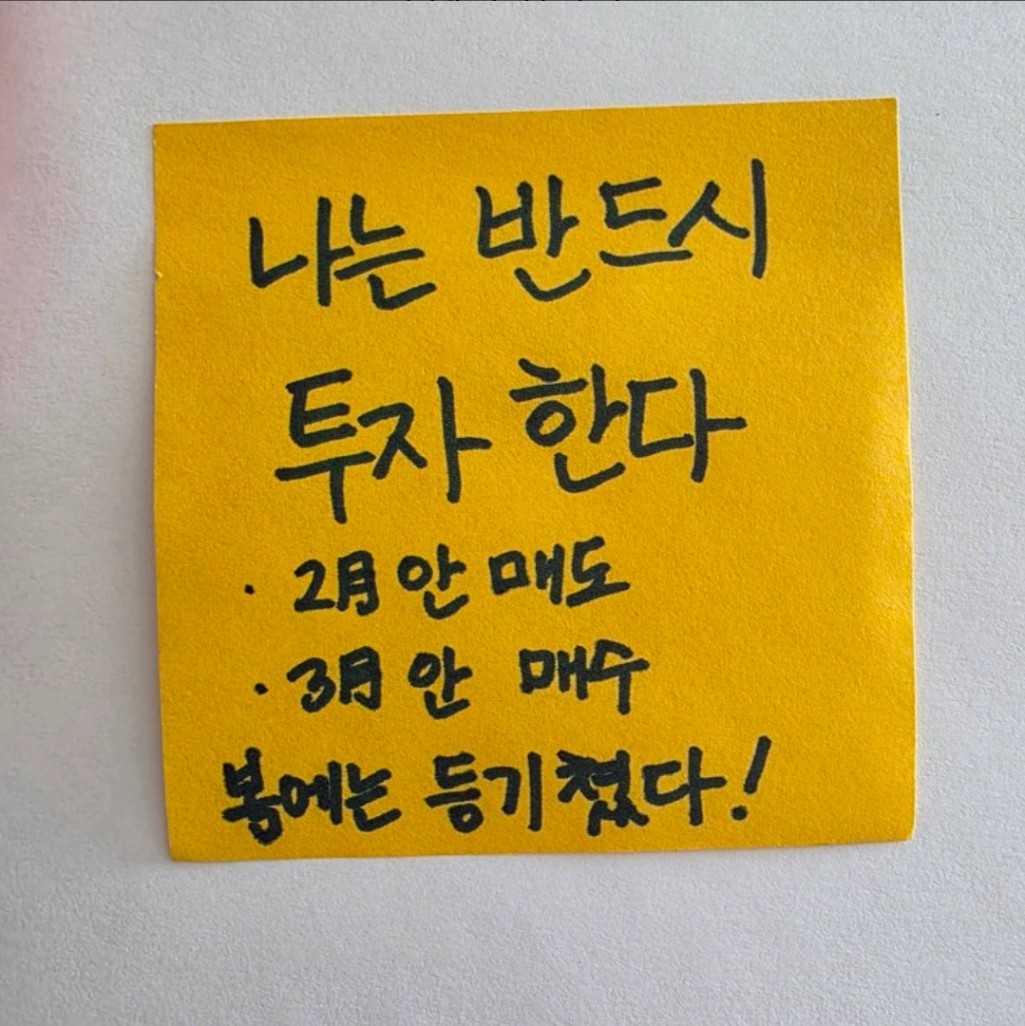 나는 반드시
투자 한다
· 2月 안 매도
· 3月 안 매수
봄에는 등기 쳤다!